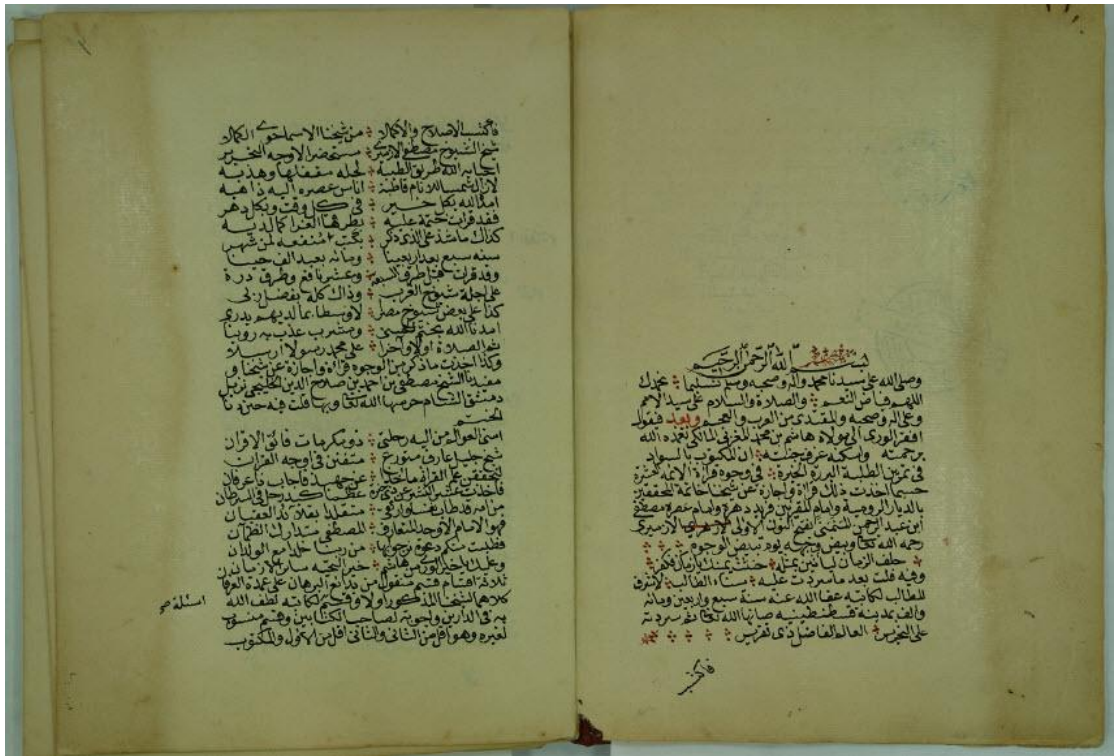 بسم الله الرحمن الرحيم
وصلى الله على سيدنا محمد واله وصحبه وسلم تسليما نحمدك
اللهم فياض النعم والصلاة والسلام على سيد الامم
وعلى اله وصحبه والمقتدى من العرب والعجم وبعد فيقول
افقر الورى الى مولاه هاشم بن محمد المغربي المالكي تغمده الله
برحمته واسكنه غرف جنته ان المكتوب بالسواد
في تمرين الطلبة البررة الخيرة في وجوه قراءة الائمة العشرة
حسبما اخذت ذلك قراءة واجازة عن شيخنا خاتمة المحققين
بالديار الرومية وامام المقرئين فريد دهره وامام عصره مصطفى
ابن عبد الرحمن الازميري
رحمه الله تعالى وبيض وجهه يوم تبيض الوجوه
حلف الزمان ليأتين بمثله حنثت يمينك يا زمان فكفر
وفيه قلت بعد ما سردت عليه
للطالب لكاتبه عفا الله عنه سنة سبع واربعين ومائة
والف بمدينة قسطنطينية صانها الله تعالى
العالم الفاضل ذى
فاكتب
فاكتب الاصلاح والاكمال من شيخنا الاسما حوى الكمال
شيخ الشيوخ مصطفى الازميري مستحضر الاوجه النحرير
احيا به الله طريق الطيبة لحله مقفلها وهذبه
لا زال شمسا للانام قاطبة اناس عصره اليه ذاهبة
امده الله بكل خير في كل وقت وبكل دهر
فقد قرات ختمة عليه بطرقها
كذاك ما شذ على الذي ذكر
سنة سبع بعد اربعينا ومائة بعيد الف حينا
وقد قرات قبل طرق السبعة وعشر نافع وطرق درة
على اجلة شيوخ الغرب وذاك كله بفضل ربي
كذا على بعض شيوخ مصر
امدنا الله ومشرب عذب به روينا
ثم الصلاة اولا واخرا على محمد رسولا
وكذا اخذت ما ذكر من الوجوه قراءة واجازة عن شيخنا و
مفيدنا الشيخ مصطفى بن احمد بن صلاح الدين الخليجي نزيل
دمشق الشام حرسها الله تعالى وبها قلت فيه حين دنا
الختم
اسنى العوالم من اليه رحلتي ذو مكرمات فائق الاقران
شيخ جليل عارف متورع متفنن في اوجه القران
عن جهبذ
فاخذت عشر النشر
متقلدا بقلائد العقيان
فهو الامام الاوحد المتعارف المصطفى
فطلبت منكم دعوة نرجو بها من ربنا خلدا مع الولدان
وعليك يا خير الورى من هاشم خير التحية سائر الازمان
ثلاثة اقسام قسم منقول من بدائع البرهان على عمدة العرفان
كلاهما لشيخنا المذكور اولا وقسم لكاتبه لطف الله
به في الدارين واجوبة لصاحب الكتابين وقسم منسوب
لغيره وهو اقل من الثاني والثاني اقل من الاول والمكتوب
اسئلة صح